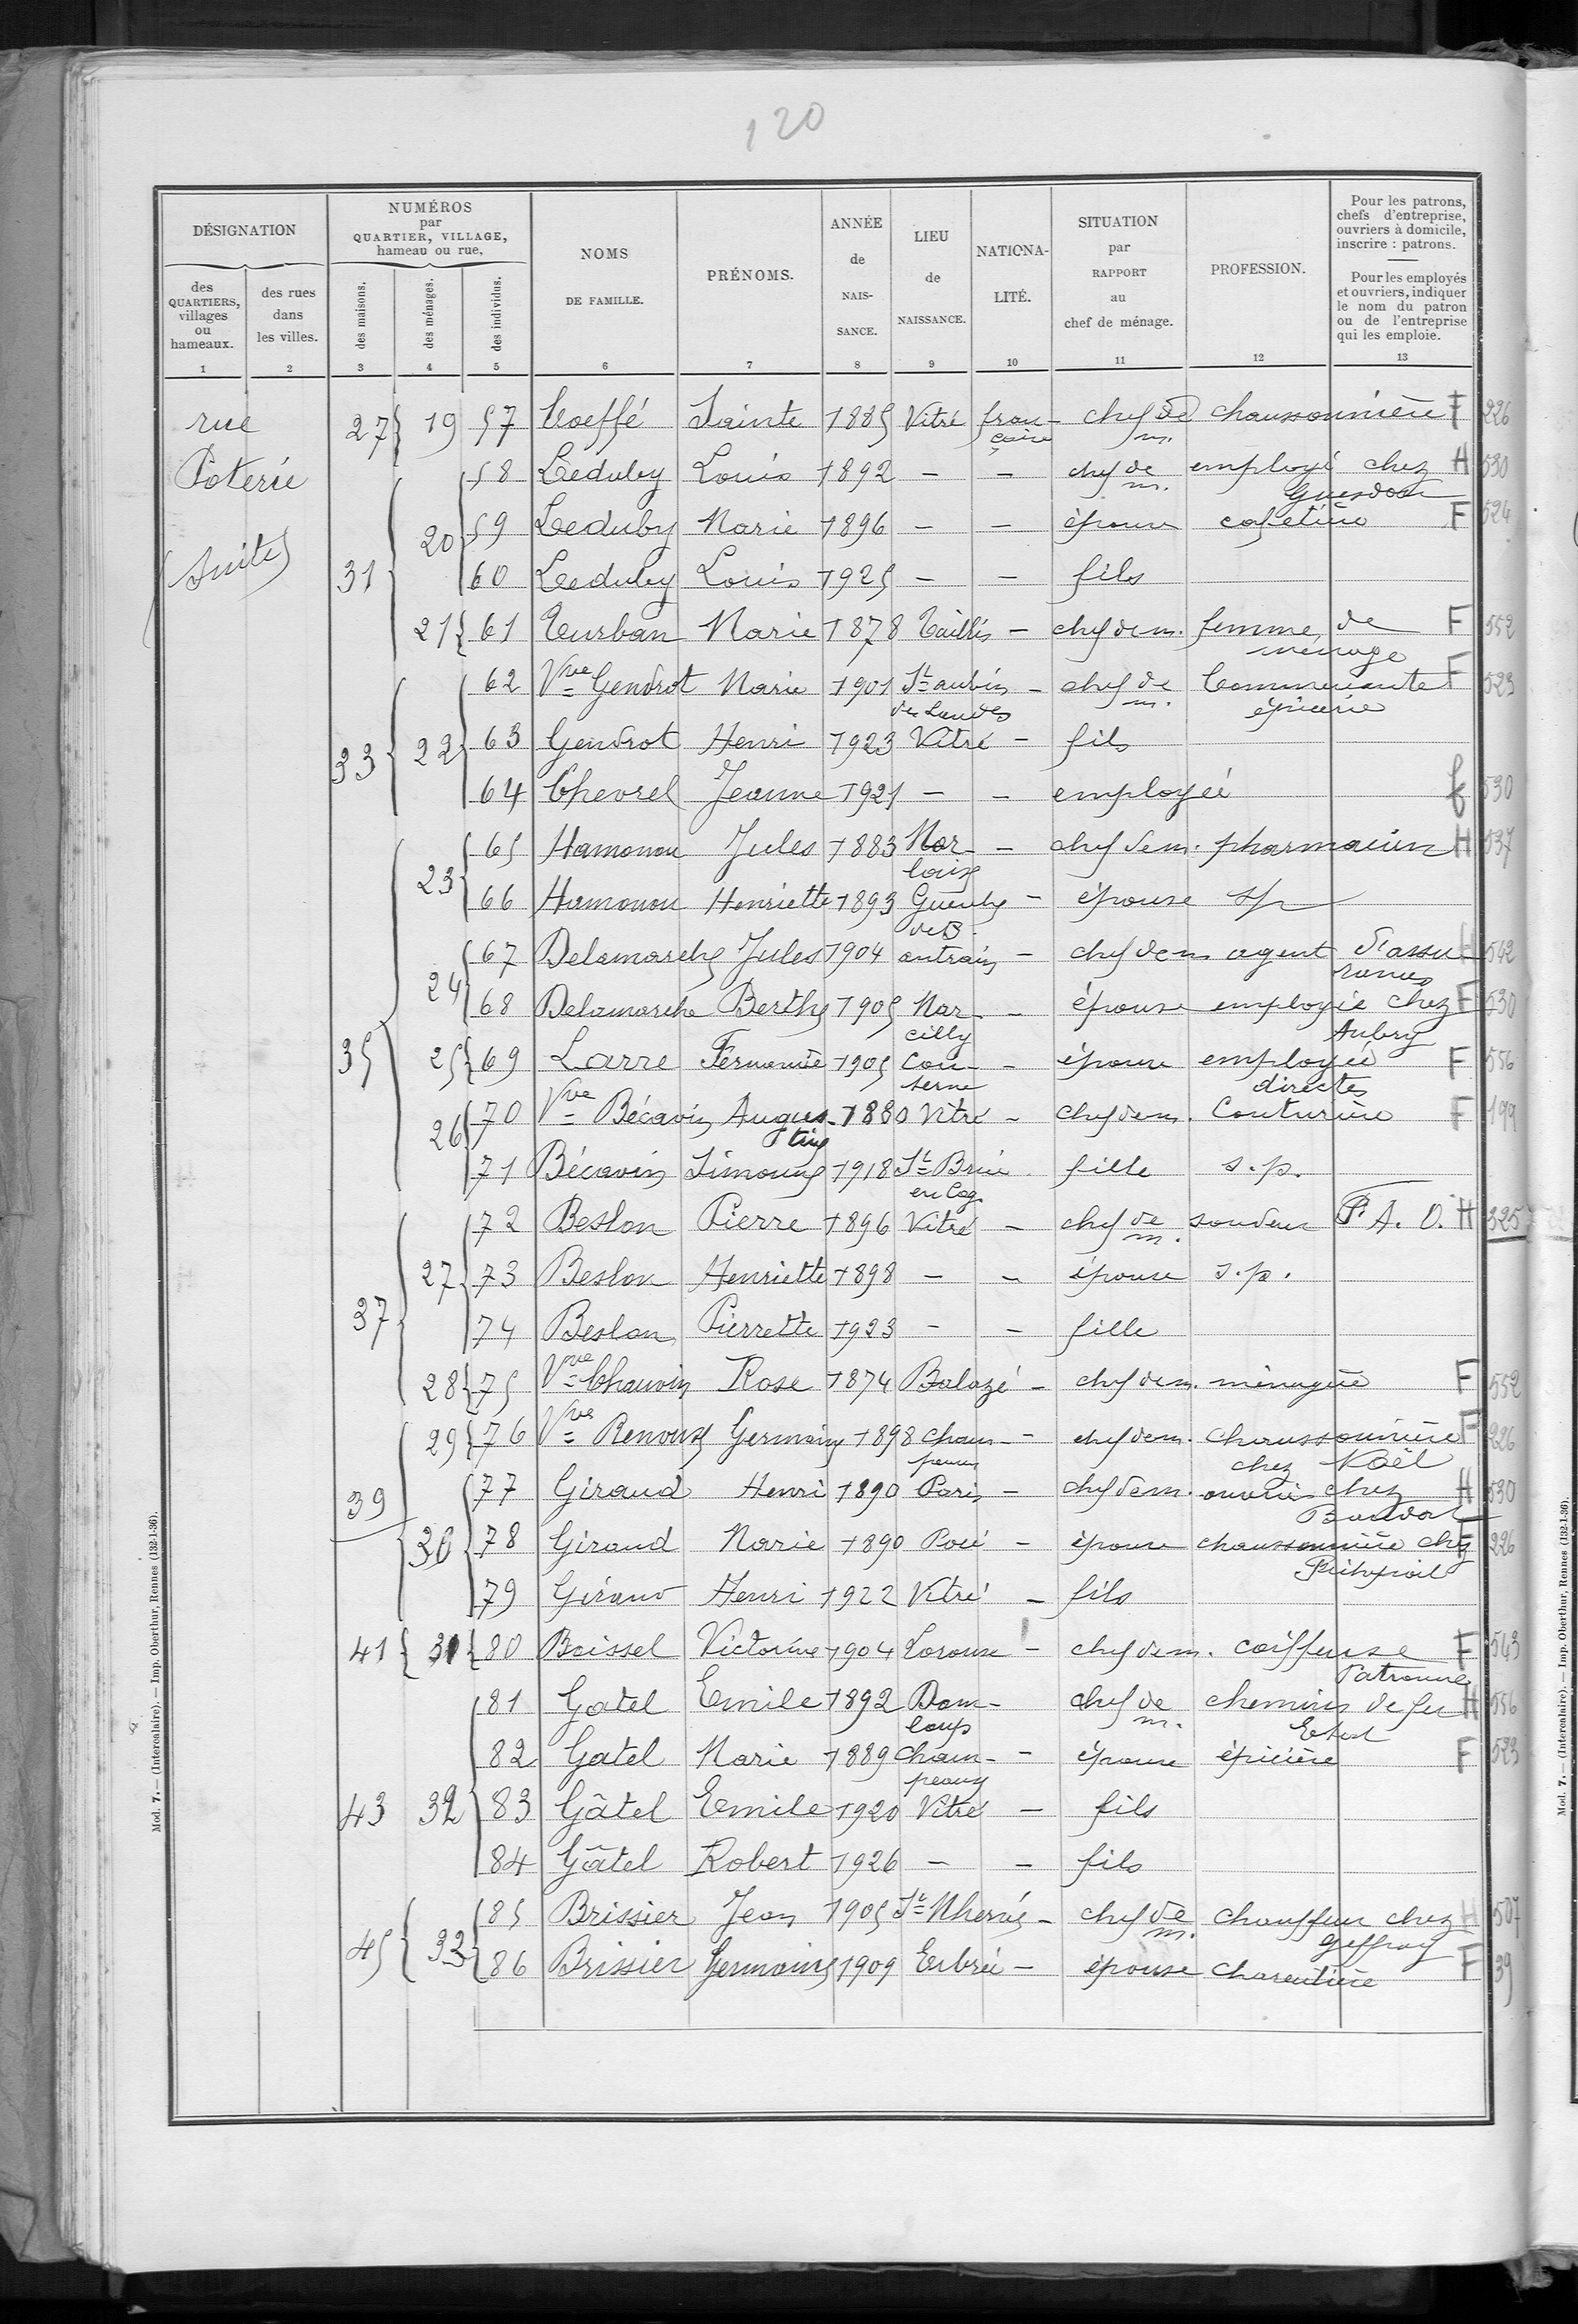 120
DÉSIGNATION
des QUARTIERS, villages ou hameaux.
des rues dans les villes.
NUMÉROS par QUARTIER, VILLAGE, hameau ou rue.
des maisons.
des ménages.
des individus.
NOMS DE FAMILLE.
PRÉNOMS.
ANNÉE de NAIS-SANCE.
LIEU de NAISSANCE.
NATIONA-LITÉ.
SITUATION par RAPPORT au chef de ménage.
PROFESSION.
Pour les patrons, chefs d'entreprise, ouvriers à domicile, inscrire : patrons.
Pour les employés et ouvriers, indiquer le nom du patron ou de l'entreprise qui les emploie.
1 2 3 4 5 6 7 8 9 10 11 12 13
rue Poterie (suite)
27 19 57 Coeffé Sainte 1885 Vitré française chef de m. chaussonnière F 226
58 Leduby Louis 1892 - - chef de m. employé chez Guesdon H 530
20 59 Leduby Marie 1896 - - épouse cafetière F 524
31 60 Leduby Louis 1925 - - fils
21 61 Turban Marie 1878 Taillis - chef de m. femme de ménage F 552
62 Vve Gendrot Marie 1901 St aubin des Landes - chef de m. Commerçante épicerie F 523
33 22 63 Gendrot Henri 1923 Vitré - fils
64 Chevrel Jeanne 1921 - - employée f 530
65 Hamonou Jules 1883 Morlaix - chef de m. pharmacien H 537
23 66 Hamonou Henriette 1893 - épouse sp
67 Delamarche Jules 1904 antrain - chef de m agent d'assurances 542
24 68 Delamarche Berthe 1905 Marcilly - épouse employée chez Aubry F 530
35 25 69 Larre Fernande 1905 - épouse employée directes F 556
26 70 Vve Bécavin Augustine 1880 Vitré - chef de m. Couturière F 199
71 Bécavin Simonne 1918 St Brice en Cog. fille s.p.
72 Beslon Pierre 1896 Vitré - chef de m. soudeur F. A. O. H 325
27 73 Beslon Henriette 1898 - - épouse s.p.
37 74 Beslon Pierrette 1923 - - fille
28 75 Vve Chauvin Rose 1874 Balazé - chef de m. ménagère F 552
29 76 Vve Renoux Germaine 1898 - chef de m. chaussonnière chez Noël F 226
39 77 Giraud Henri 1890 Paris - chef de m. ouvrier chez H 530
30 78 Giraud Marie 1890 Pocé - épouse chaussonnière chez F 226
79 Giraud Henri 1922 Vitré - fils
41 31 80 Boissel Victorine 1904 - chef de m. coiffeuse Patronne F 543
81 Gatel Emile 1892 Domloup chef de m. chemins de fer Etat H 556
82 Gatel Marie 1889 Champeaux - épouse épicière F 523
43 32 83 Gâtel Emile 1920 Vitré - fils
84 Gâtel Robert 1926 - - fils
85 Brissier Jean 1905 St Mhervé - chef de m. chauffeur chez Geffroy H 507
45 32 86 Brissier Germaine 1909 Erbrée - épouse charcutière F 39
Mod. 7. — (Intercalaire). — Imp. Oberthur, Rennes (132-1-36).
Mod. 7. — (Intercalaire). — Imp. Oberthur, Rennes (132-1-36).